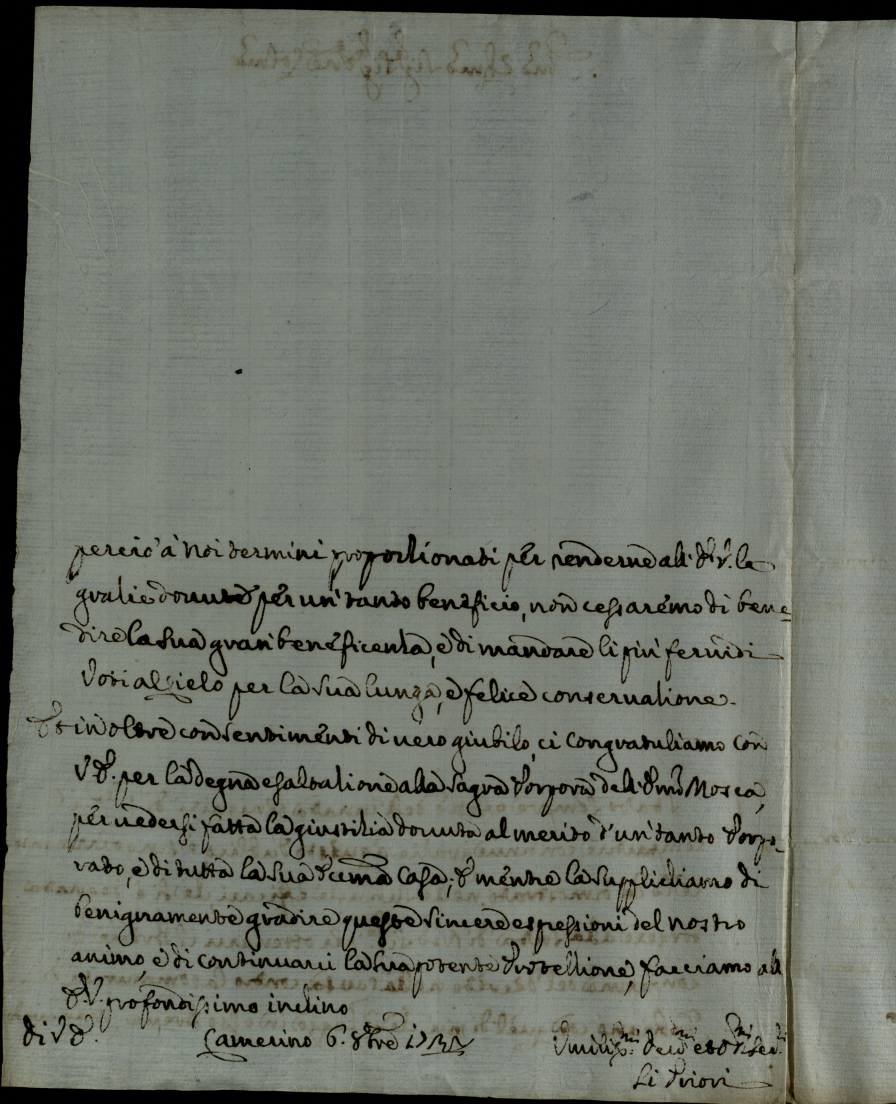 perciò à noi termini proportionati per renderne all' E. V. le
gratie dovute per un' tanto beneficio, non cessaremo di bene=
dire la sua gran' beneficenza, è di mandare li più fervidi
Voti al Cielo per la sua lunga, è felice conservatione.
Et in oltre con sentimenti di vero giubilo, ci congratuliamo con
V. E. per la degna esaltatione alla sagra Porpora dell' Emo Mosca,
per vedersi fatta la giustitia dovuta al merito d' un' tanto Porpo=
rato, è di tutta la sua Ecc.ma Casa; E mentre la supplichiamo di
benignamente gradire queste sincere espressioni del nostro
animo, è di continuarci la sua potente Protettione, facciamo all'
E. V. profondissimo inchino
di V. E. Camerino 6. 8bre
Umiliss.mi Dev.mi et Obb.mi Ser.ri
Li Priori